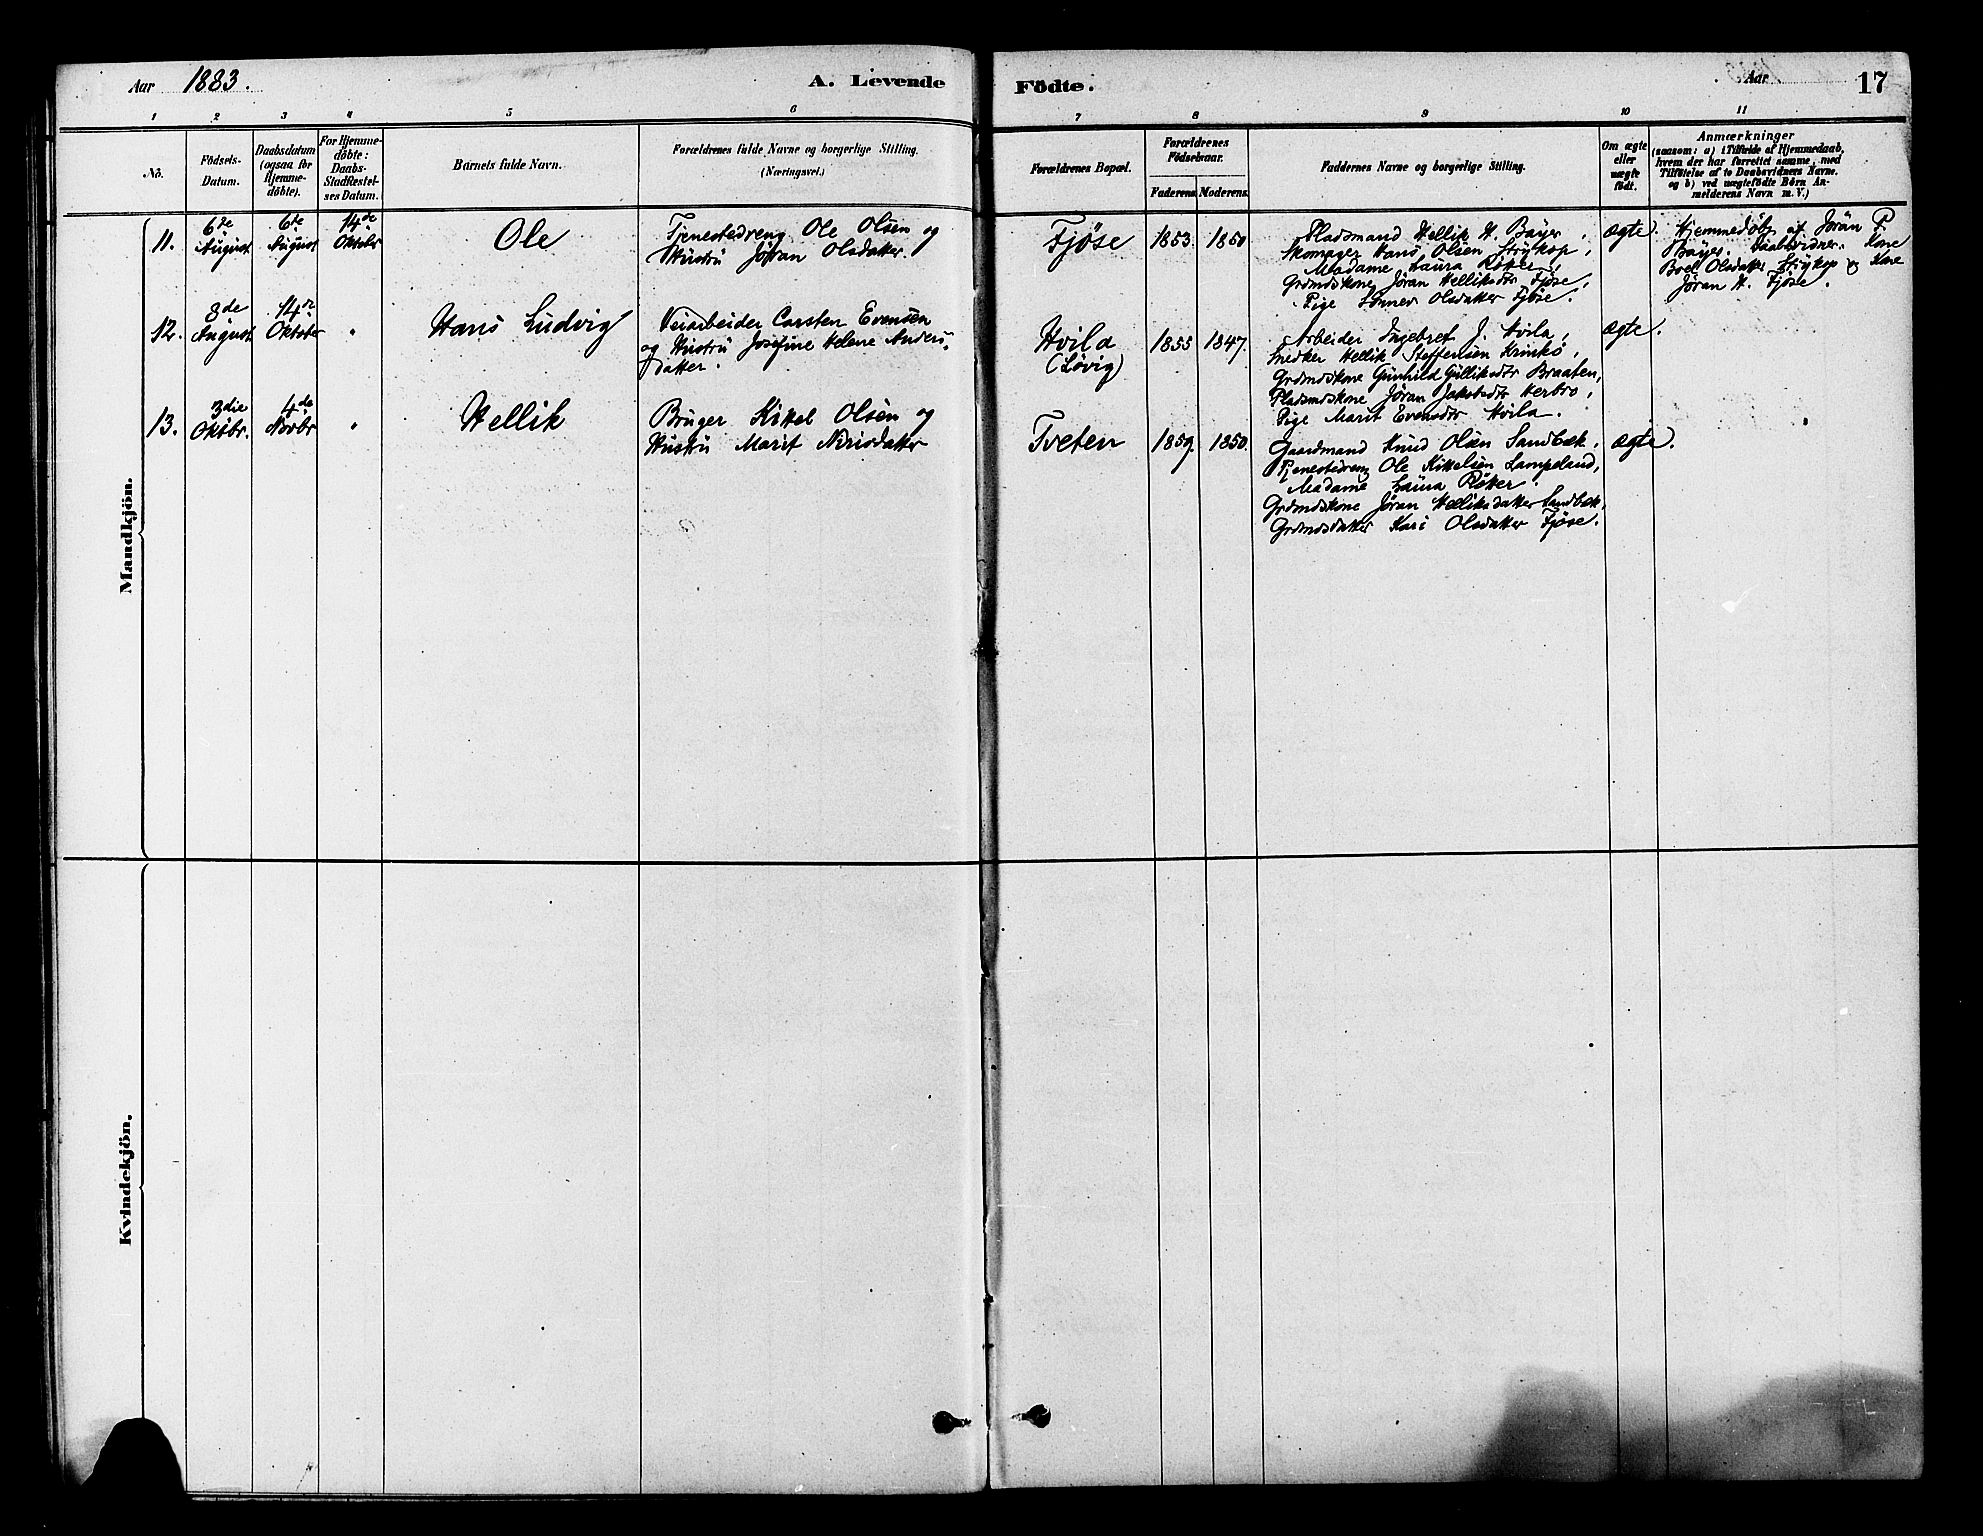 Aar 1883.
A. Levende
Födte.
Aar
17
1
2
3
4
5
6
7
8
9
10
11
No.
Födsels-
Datum.
Daabsdatum
(ogsaa for
Hjemme-
döbte).
For Hjemme-
döbte:
Daabs-
Stadfæstel-
ses Datum.
Barnets fulde Navn.
Forældrenes fulde Navne og borgerlige Stilling.
(Næringsvei.)
Forældrenes Bopæl.
Forældrenes
Födselsaar.
Faderens.
Moderens.
Faddernes Navne og borgerlige Stilling.
Om ægte
eller
uægte
født.
Anmærkninger
(saasom: a) i Tilfælde af Hjemmedaab,
hvem der har forrettet samme, med
Tilföielse af to Daabsvidners Navne.
og b) ved uægtefödte Börn An-
melderens Navn m. V.)
Mandkjön.
11.
6te
August
6te
August
14de
Oktobr
Ole
Tjenestedreng Ole Olsen og
Hustru Jöran Olsdatter.
Fjøse
1853.
1850
Pladsmand Hellik H. Bayer,
Skomager Hans Olsen Strykop,
Madame Laura Röker,
Grdmdskone Jøran Helliksdtr Fjøse,
Pige Olsdatter Fjøse.
ægte.
Hjemmedøbt af Jöran P.
Bayer. Daabsvidner: Kone
Olsdatter Strykop og Kone
Jøran H. Fjøse.
12.
8de
August
14de
Oktober
"
Hans Ludvig
Veiarbeider Carsten Evensen
og Hustru Josefine Helene Anders-
datter.
Hvila
(Løvig)
1855
1847.
Arbeider Ingebret J. Hvila,
Snedker Hellik Steffensen
Grdmdskone Gunhild Gulliksdtr Braaten,
Pladsmdskone Jøran Jakobsdtr Herbro,
Pige Marit Evensdtr Hvila.
ægte.
13.
3die
Oktbr.
4de
Novbr
"
Hellik
Bruger Kittel Olsen og
Hustru Marit Nirisdatter
Tveten
1859.
1850.
Gaardmand Knud Olsen Sandbæk,
Tjenestedreng Ole Kittelsen Lampeland,
Madame Laura Röker.
Grdmdskone Jøran Helliksdatter Sandbæk,
Grdmdsdatter Kari Olsdatter Fjøse.
ægte.
Kvindekjön.